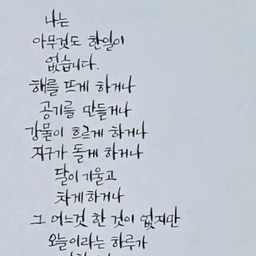 나는
아무것도 한일이
없습니다.
해를 뜨게 하거나
공기를 만들거나
강물이 흐르게 하거나
지구가 돌게 하거나
달이 기울고
차게하거나
그 어느것 한 것이 없지만
오늘이라는 하루가